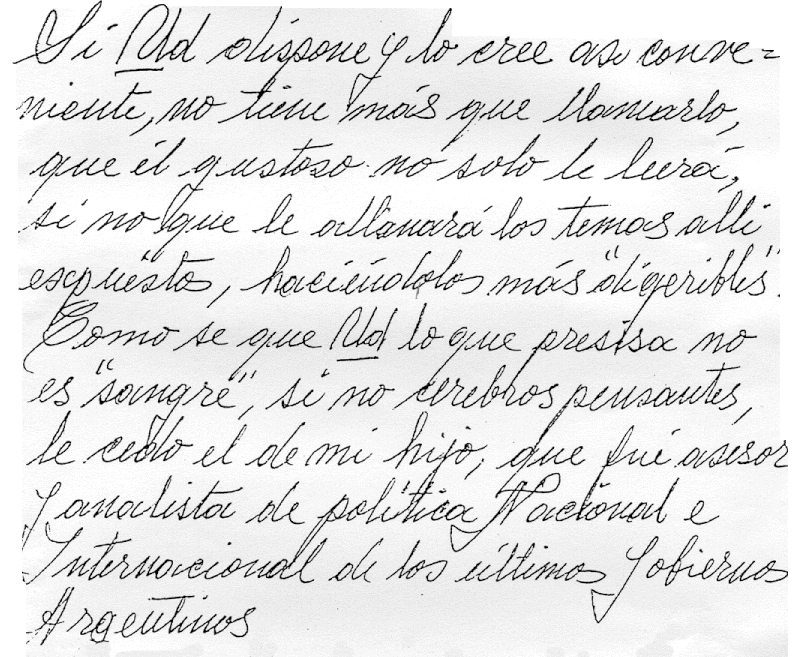 Si Ud dispone y lo cree asi conve=
niente, no tiene más que llamarlo,
que él gustoso no solo le leerá,
si no que le allanará los temas alli
expuestos, haciéndolos más "digeribles".
Como se que Ud lo que presisa no
es "sangre", si no cerebros pensantes,
le cedo el de mi hijo, que fué asesor
y analista de política Nacional e
Internacional de los últimos Gobiernos
Argentinos